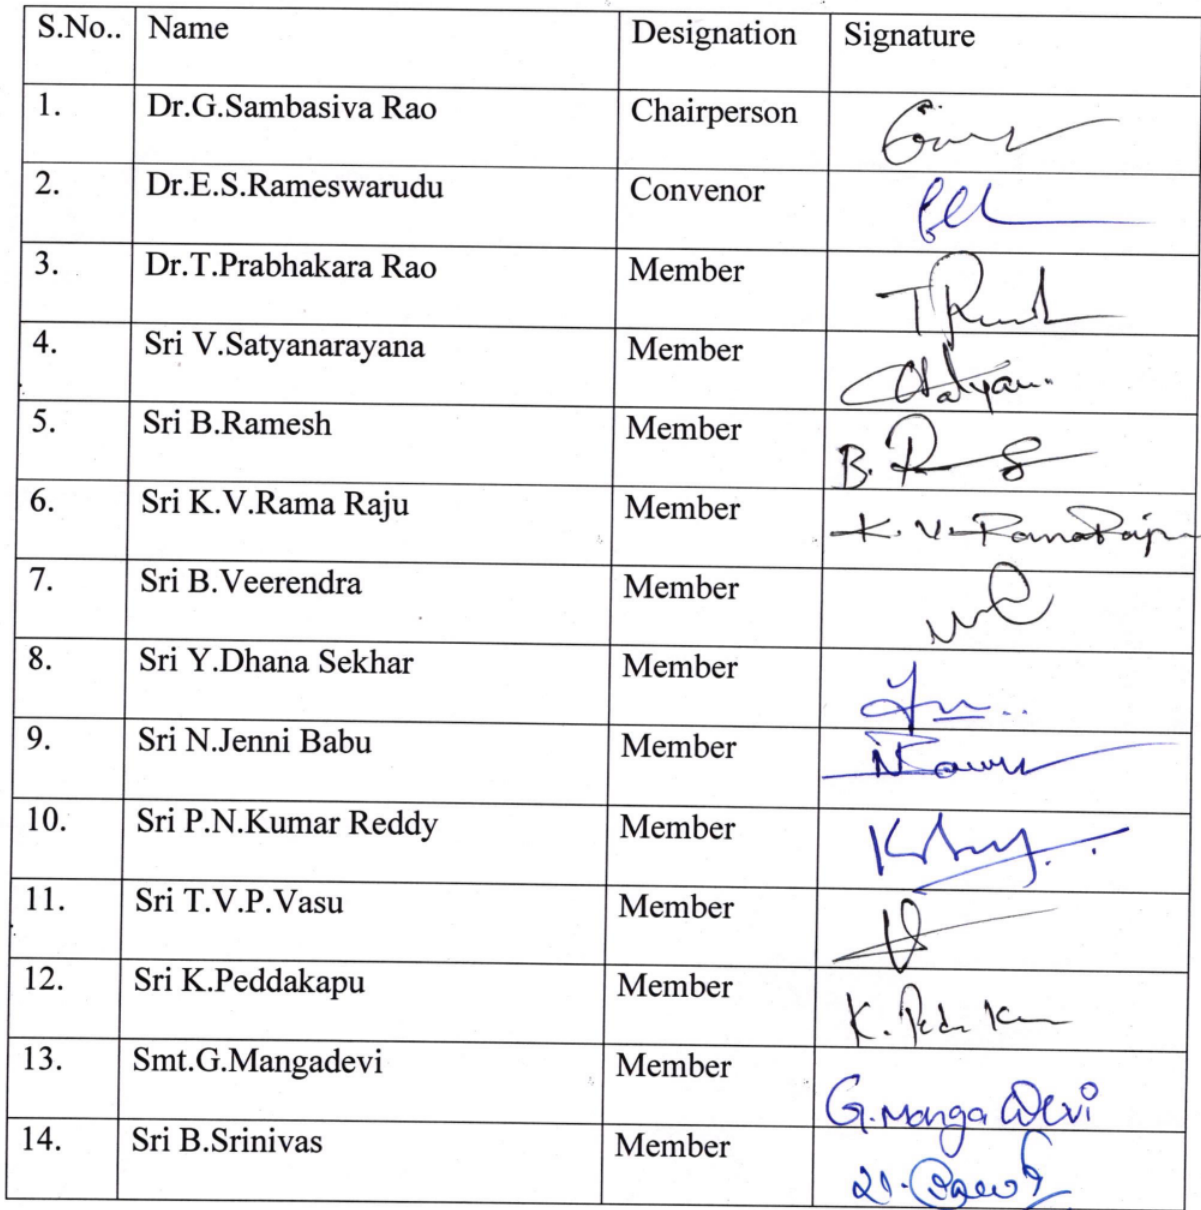 S.No.. Name Designation Signature
1. Dr.G.Sambasiva Rao Chairperson
2. Dr.E.S.Rameswarudu Convenor
3. Dr.T.Prabhakara Rao Member
4. Sri V.Satyanarayana Member
5. Sri B.Ramesh Member B.
6. Sri K.V.Rama Raju Member K.V.RamaRaju
7. Sri B.Veerendra Member
8. Sri Y.Dhana Sekhar Member
9. Sri N.Jenni Babu Member
10. Sri P.N.Kumar Reddy Member
11. Sri T.V.P.Vasu Member
12. Sri K.Peddakapu Member K.
13. Smt.G.Mangadevi Member G.Manga Devi
14. Sri B.Srinivas Member